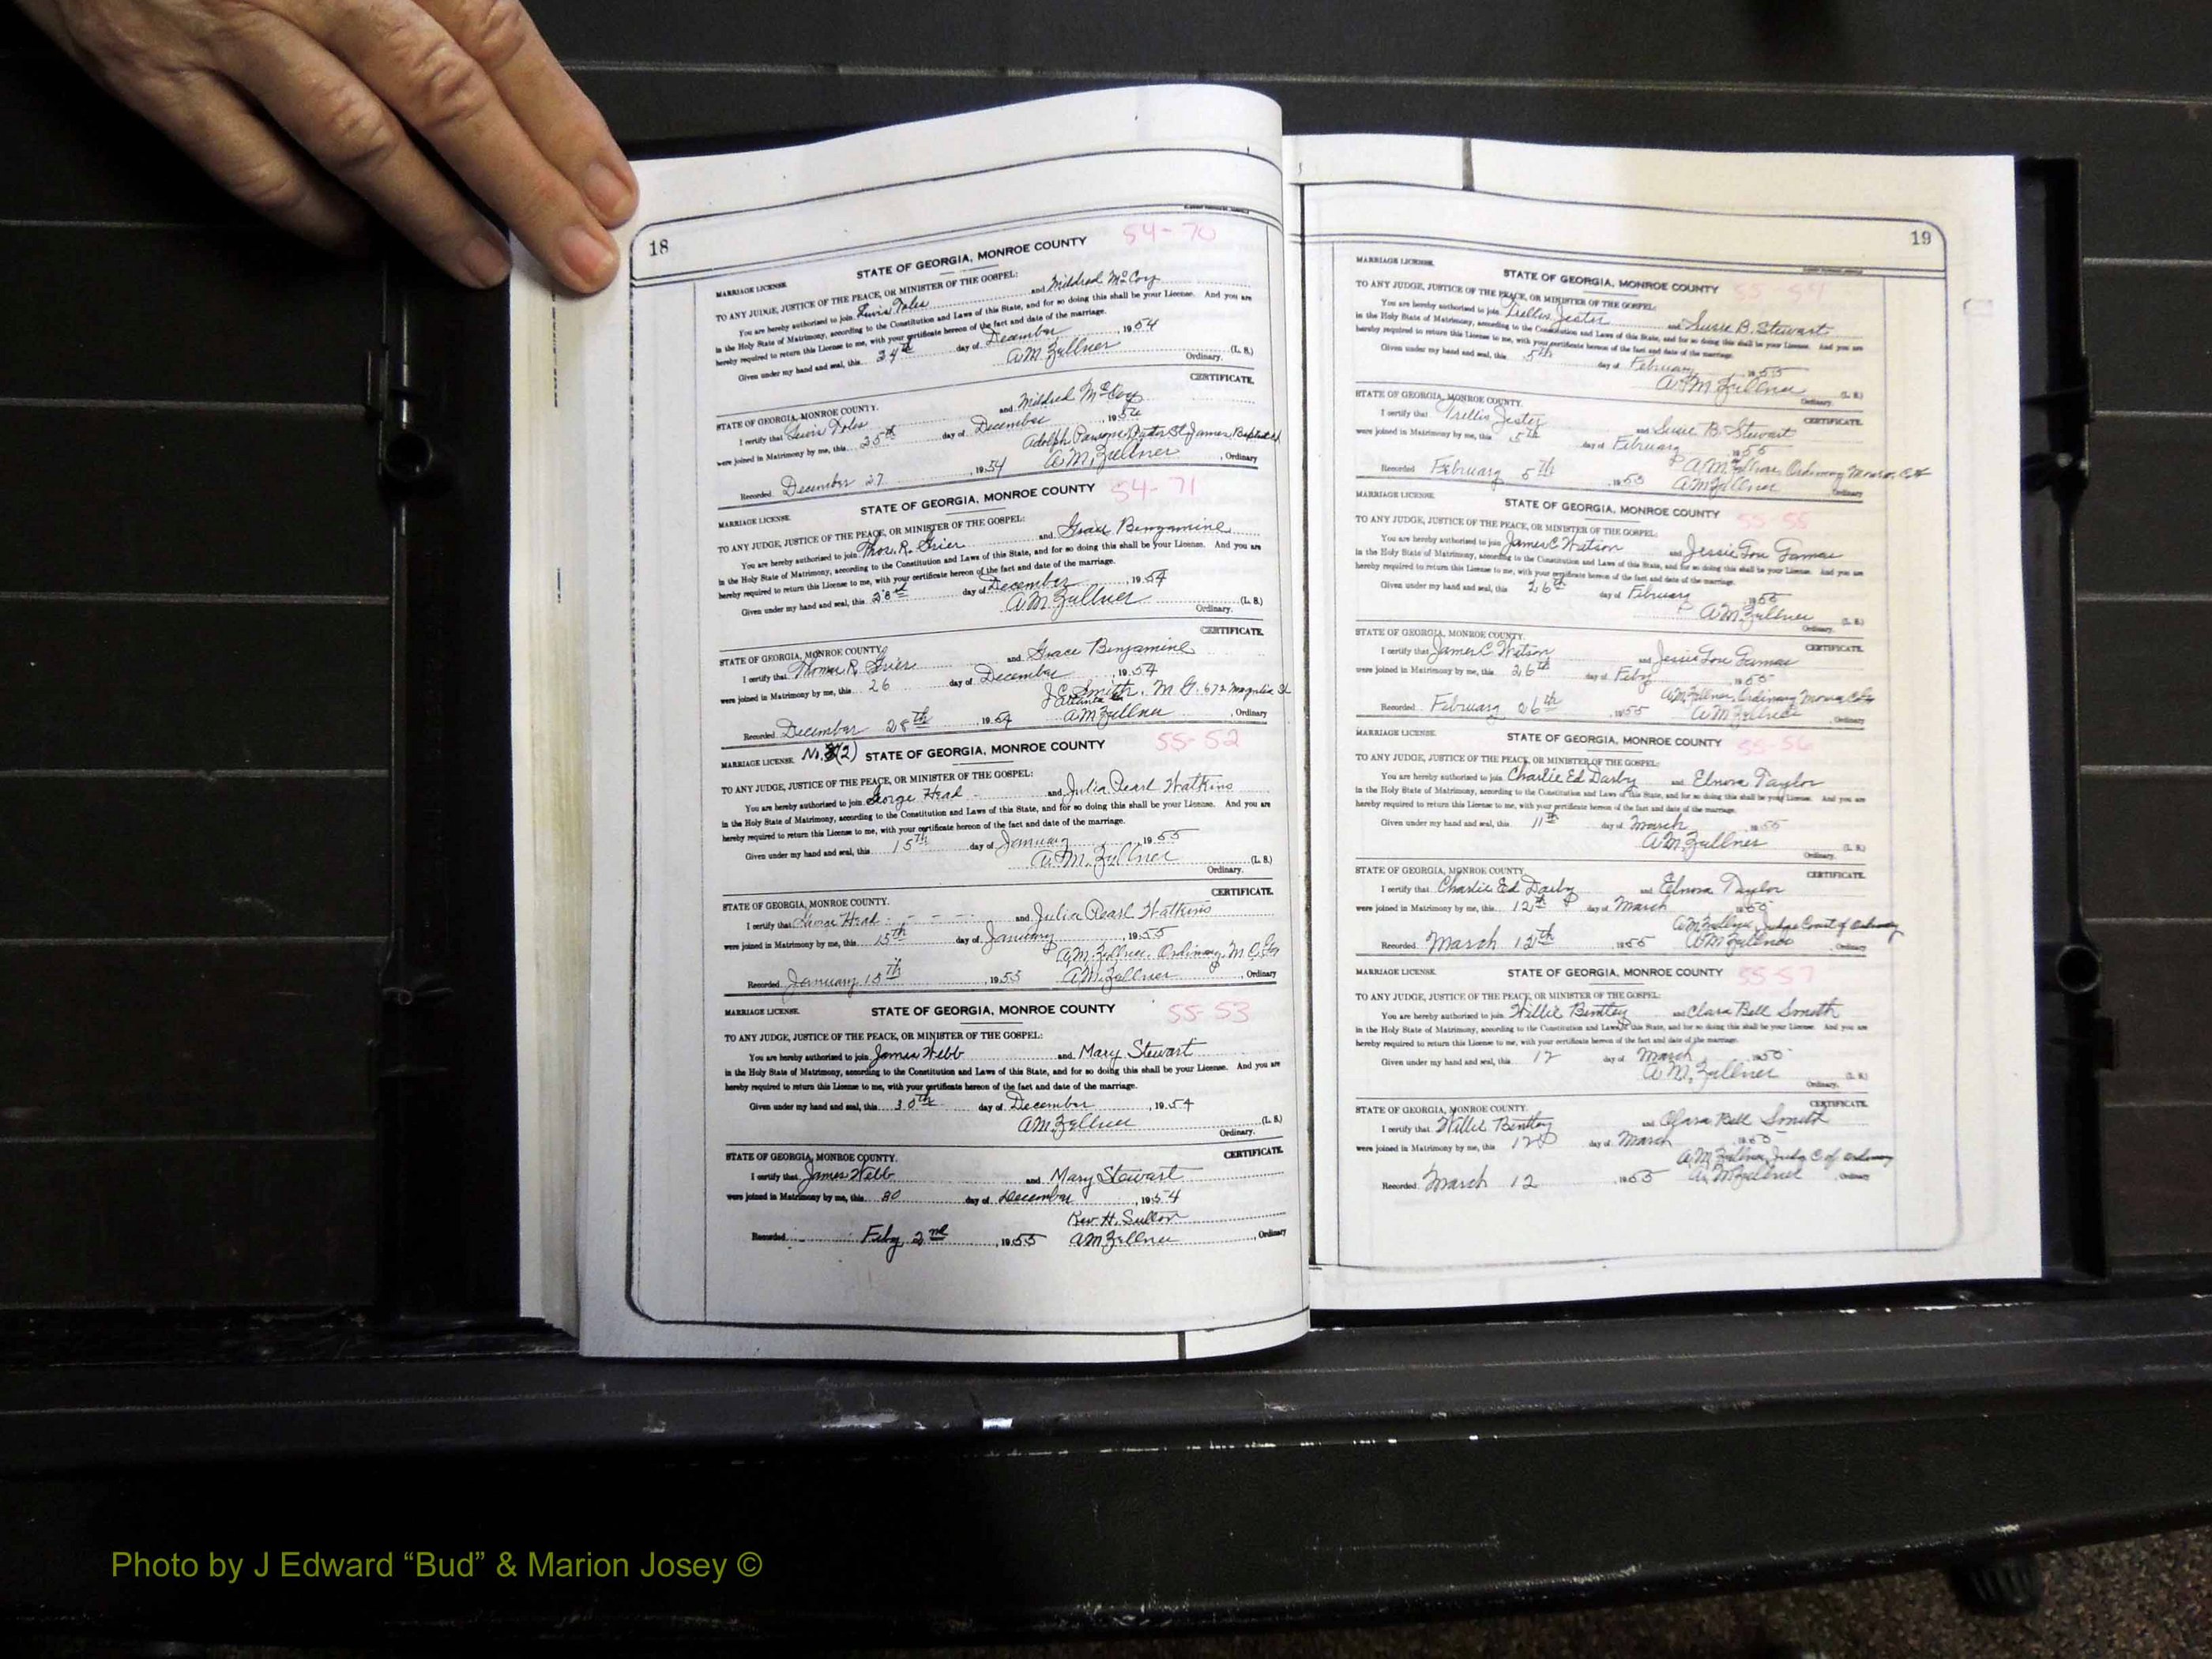 18
STATE OF GEORGIA, MONROE COUNTY 54-70
MARRIAGE LICENSE
TO ANY JUDGE, JUSTICE OF THE PEACE, OR MINISTER OF THE GOSPEL:
You are hereby authorized to join and Mildred McCoy
in the Holy State of Matrimony, according to the Constitution and Laws of this State, and for so doing this shall be your License. And you are
hereby required to return this License to me, with your certificate hereon of the fact and date of the marriage.
Given under my hand and seal, this 24th day of December, 1954
A.M. Zellner (L. S.)
Ordinary.
CERTIFICATE.
STATE OF GEORGIA, MONROE COUNTY.
I certify that and Mildred McCoy
were joined in Matrimony by me, this 25th day of December, 1954
Adolph Pastor St James Baptist
Recorded December 27, 1954 A.M. Zellner, Ordinary
STATE OF GEORGIA, MONROE COUNTY 54-71
MARRIAGE LICENSE
TO ANY JUDGE, JUSTICE OF THE PEACE, OR MINISTER OF THE GOSPEL:
You are hereby authorized to join Thos. R. Grier and Grace Bengamine
in the Holy State of Matrimony, according to the Constitution and Laws of this State, and for so doing this shall be your License. And you are
hereby required to return this License to me, with your certificate hereon of the fact and date of the marriage.
Given under my hand and seal, this day of December, 1954
A.M. Zellner (L. S.)
Ordinary.
CERTIFICATE.
STATE OF GEORGIA, MONROE COUNTY.
I certify that Thomas R. Grier and Grace Benjamine
were joined in Matrimony by me, this 26 day of December, 1954
J.C. Smith, M G. 672 Magnolia St
Atlanta
Recorded December 28th, 1954 A.M. Zellner, Ordinary
MARRIAGE LICENSE. STATE OF GEORGIA, MONROE COUNTY 55-52
TO ANY JUDGE, JUSTICE OF THE PEACE, OR MINISTER OF THE GOSPEL:
You are hereby authorized to join George Head and Julia Pearl Watkins
in the Holy State of Matrimony, according to the Constitution and Laws of this State, and for so doing this shall be your License. And you are
hereby required to return this License to me, with your certificate hereon of the fact and date of the marriage.
Given under my hand and seal, this 15th day of January, 1955
A.M. Zellner (L. S.)
Ordinary.
CERTIFICATE.
STATE OF GEORGIA, MONROE COUNTY.
I certify that George Head and Julia Pearl Watkins
were joined in Matrimony by me, this 15th day of January, 1955
A.M. Zellner, Ordinary, M C, Ga
Recorded January 15th, 1955 A.M. Zellner, Ordinary
MARRIAGE LICENSE. STATE OF GEORGIA, MONROE COUNTY 55-53
TO ANY JUDGE, JUSTICE OF THE PEACE, OR MINISTER OF THE GOSPEL:
You are hereby authorized to join James Webb and Mary Stewart
in the Holy State of Matrimony, according to the Constitution and Laws of this State, and for so doing this shall be your License. And you are
hereby required to return this License to me, with your certificate hereon of the fact and date of the marriage.
Given under my hand and seal, this 30th day of December, 1954
A.M. Zellner (L. S.)
Ordinary.
CERTIFICATE.
STATE OF GEORGIA, MONROE COUNTY.
I certify that James Webb and Mary Stewart
were joined in Matrimony by me, this 30 day of December, 1954
Rev. H.
Recorded Feby 2nd, 1955 A.M. Zellner, Ordinary
19
MARRIAGE LICENSE.
STATE OF GEORGIA, MONROE COUNTY 55-54
TO ANY JUDGE, JUSTICE OF THE PEACE, OR MINISTER OF THE GOSPEL:
You are hereby authorized to join Jester and Susie B. Stewart
in the Holy State of Matrimony, according to the Constitution and Laws of this State, and for so doing this shall be your License. And you are
hereby required to return this License to me, with your certificate hereon of the fact and date of the marriage.
Given under my hand and seal, this 5th day of February, 1955
A.M. Zellner (L. S.)
Ordinary.
STATE OF GEORGIA, MONROE COUNTY. CERTIFICATE.
I certify that Jester and Susie B. Stewart
were joined in Matrimony by me, this 5th day of February 1955
A.M. Zellner, Ordinary Monroe,
Recorded February 5th, 1955 A.M. Zellner Ordinary
MARRIAGE LICENSE. STATE OF GEORGIA, MONROE COUNTY 55-55
TO ANY JUDGE, JUSTICE OF THE PEACE, OR MINISTER OF THE GOSPEL:
You are hereby authorized to join James C Watson and Jessie Lou
in the Holy State of Matrimony, according to the Constitution and Laws of this State, and for so doing this shall be your License. And you are
hereby required to return this License to me, with your certificate hereon of the fact and date of the marriage.
Given under my hand and seal, this 26th day of February 1955
A.M. Zellner (L. S.)
Ordinary.
STATE OF GEORGIA, MONROE COUNTY. CERTIFICATE.
I certify that James C. Watson and Jessie Lou
were joined in Matrimony by me, this 26th day of Feby 1955
A.M. Zellner, Ordinary Monroe
Recorded February 26th, 1955 A.M. Zellner, Ordinary
MARRIAGE LICENSE. STATE OF GEORGIA, MONROE COUNTY 55-56
TO ANY JUDGE, JUSTICE OF THE PEACE, OR MINISTER OF THE GOSPEL:
You are hereby authorized to join Charlie Ed Darby and Elnora Taylor
in the Holy State of Matrimony, according to the Constitution and Laws of this State, and for so doing this shall be your License. And you are
hereby required to return this License to me, with your certificate hereon of the fact and date of the marriage.
Given under my hand and seal, this 11th day of March, 1955
A.M. Zellner (L. S.)
Ordinary.
STATE OF GEORGIA, MONROE COUNTY. CERTIFICATE.
I certify that Charlie Ed Darby and Elnora Taylor
were joined in Matrimony by me, this 12th day of March 1955
A.M. Zellner, Judge Court of Ordinary
Recorded March 12th, 1955 A.M. Zellner, Ordinary
MARRIAGE LICENSE. STATE OF GEORGIA, MONROE COUNTY 55-57
TO ANY JUDGE, JUSTICE OF THE PEACE, OR MINISTER OF THE GOSPEL:
You are hereby authorized to join Willie Bentley and Clara Bell Smith
in the Holy State of Matrimony, according to the Constitution and Laws of this State, and for so doing this shall be your License. And you are
hereby required to return this License to me, with your certificate hereon of the fact and date of the marriage.
Given under my hand and seal, this 12 day of March
A.M. Zellner (L. S.)
Ordinary.
STATE OF GEORGIA, MONROE COUNTY. CERTIFICATE.
I certify that Willie Bentley and Clara Bell Smith
were joined in Matrimony by me, this 12 day of March
A.M. Zellner, Judg C of Ordinary
Recorded March 12, 1955 A.M. Zellner Ordinary
Photo by J Edward “Bud” & Marion Josey ©